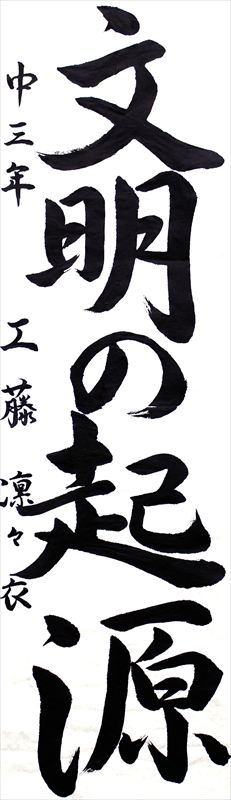 文明の起源
中三年 工藤凛々衣